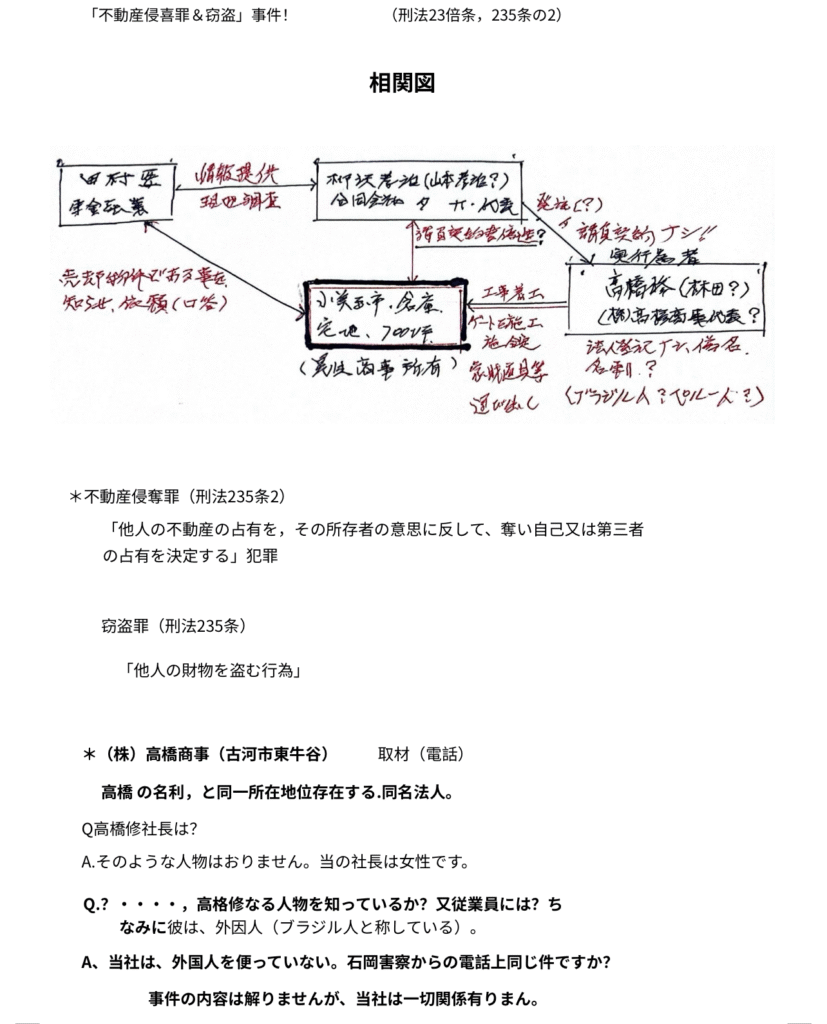 「不動産侵喜罪＆窃盗」事件！ （刑法23倍条，235条の2）
相関図
田村
情報提供
現地調査
(山本孝治？)
代表
発注(？)
請負契約ナシ!!
実行為者
売却物件である事を
知らせ、依頼(口答)
請負契約書偽造？
小美玉市・倉庫
宅地、700坪
(異性商事所有)
工事着工
ゲートを施工
施錠
家財道具等
運び出し
高橋修(林田？)
(株)高橋商事代表？
法人登記ナシ、偽名、
名刺？
(ブラジル人？ペルー人？)
＊不動産侵奪罪（刑法235条2）
「他人の不動産の占有を，その所存者の意思に反して、奪い自己又は第三者
の占有を決定する」犯罪
窃盗罪（刑法235条）
「他人の財物を盗む行為」
＊（株）高橋商事（古河市東牛谷） 取材（電話）
高橋 の名利，と同一所在地位存在する.同名法人。
Q高橋修社長は？
A.そのような人物はおりません。当の社長は女性です。
Q.？・・・・，高格修なる人物を知っているか？又従業員には？ち
なみに彼は、外因人（ブラジル人と称している）。
A、当社は、外国人を便っていない。石岡害察からの電話上同じ件ですか？
事件の内容は解りませんが、当社は一切関係有りまん。